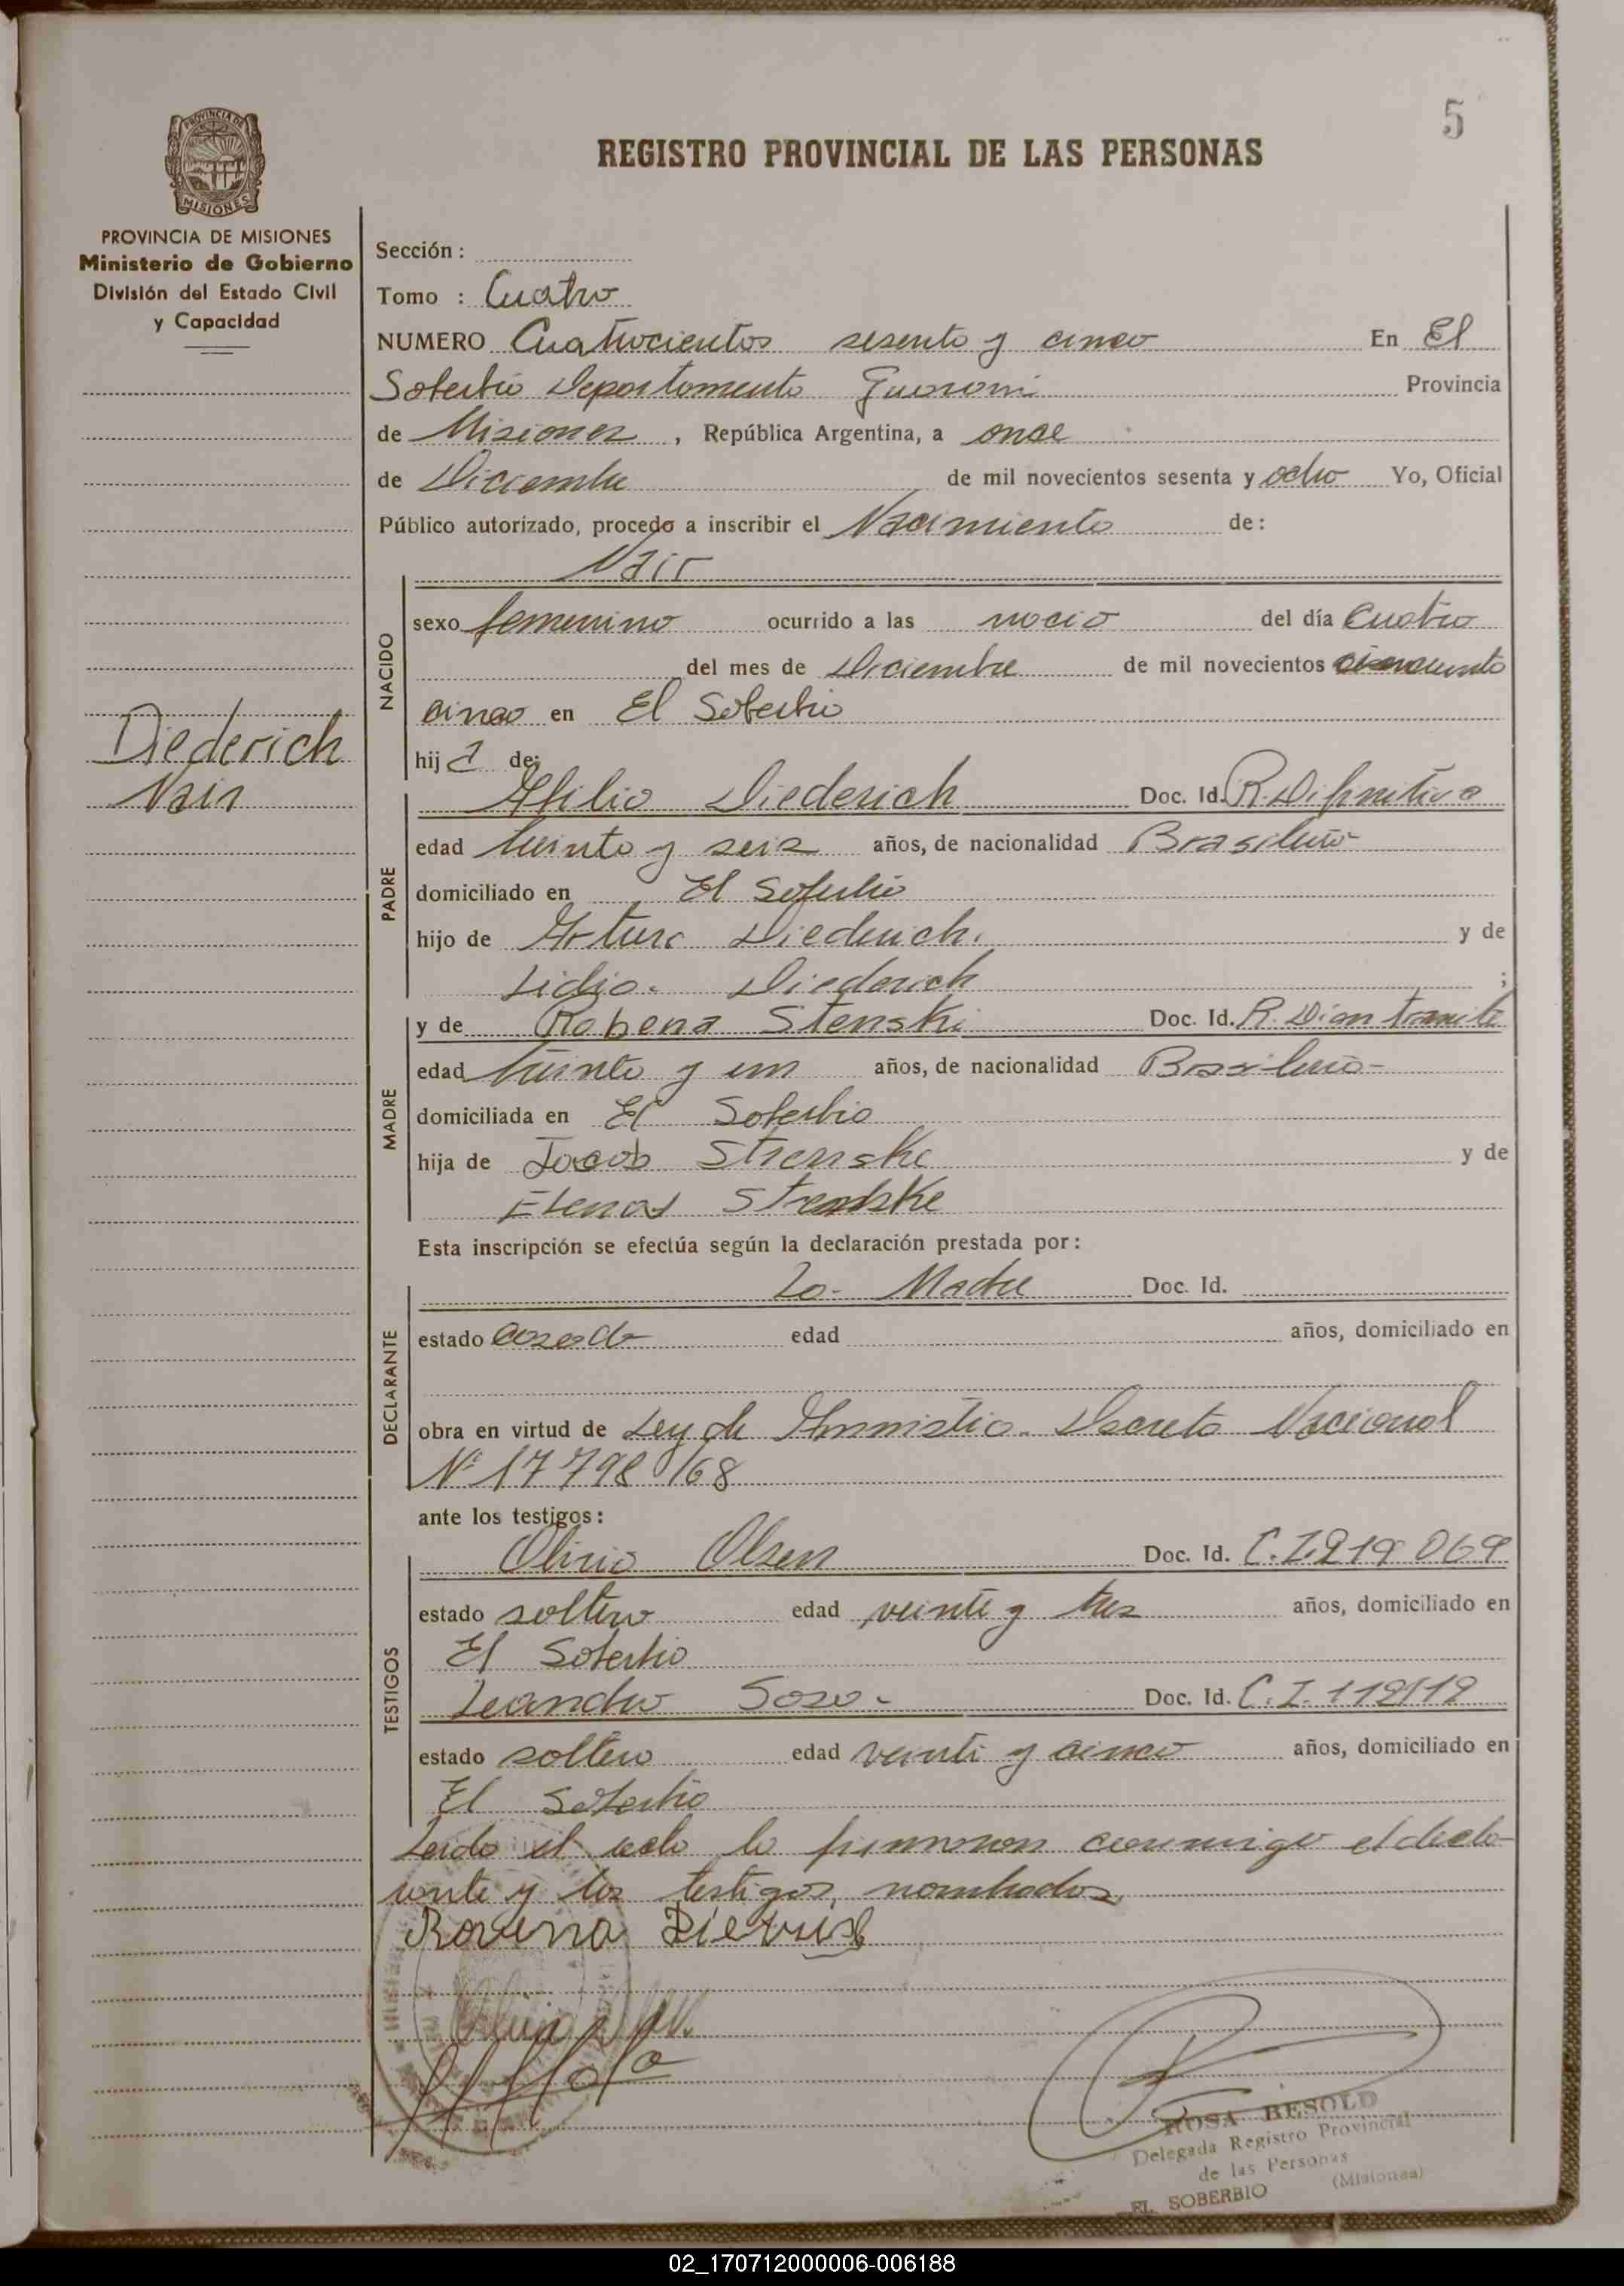 5
REGISTRO PROVINCIAL DE LAS PERSONAS
PROVINCIA DE MISIONES
MISIONES
PROVINCIA DE MISIONES
Ministerio de Gobierno
División del Estado Civil
y Capacidad
Sección :
Tomo : Cuatro
NUMERO Cuatrocientos sesenta y cinco En El
Soberbio Departamento Guarani Provincia
de Misiones , República Argentina, a once
de Diciembre de mil novecientos sesenta y ocho Yo, Oficial
Público autorizado, procedo a inscribir el Nacimiento de:
Nair
NACIDO
sexo femenino ocurrido a las nacio del día Cuatro
del mes de Diciembre de mil novecientos cincuenta
cinco en El Soberbio
hija de:
Diederich
Nair
PADRE
Diederich Doc. Id. R. Definitivo
edad treinta y seis años, de nacionalidad Brasileño
domiciliado en El Soberbio
hijo de Arturo Diederich. y de
Lidia. Diederich ;
MADRE
y de Robena Stenski Doc. Id. R. D. en tramite
edad treinta y un años, de nacionalidad Brasileño-
domiciliada en El Soberbio
hija de Jacob Strenske y de
Elena Strenske
Esta inscripción se efectúa según la declaración prestada por:
DECLARANTE
La- Madre Doc. Id.
estado casada edad años, domiciliado en
obra en virtud de Ley de Amnistia. Decreto Nacional
Nº 17798/68
ante los testigos:
TESTIGOS
Olirio Olsen Doc. Id. C.I. 219 069
estado soltero edad veinte y tres años, domiciliado en
El Soberbio
Leandro Sosa- Doc. Id. C.I. 112112
estado soltero edad veinti y cinco años, domiciliado en
El Soberbio
Leido el acta la firmaron conmigo el decla-
rante y los testigos nombrados,
Rovena
ROSA BESOLD
Delegada Registro Provincial
de las Personas
EL SOBERBIO (Misiones)
02_170712000006-006188